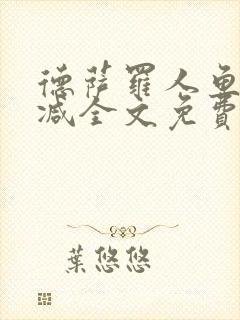 德薩羅人魚
減全文免費
葉悠悠